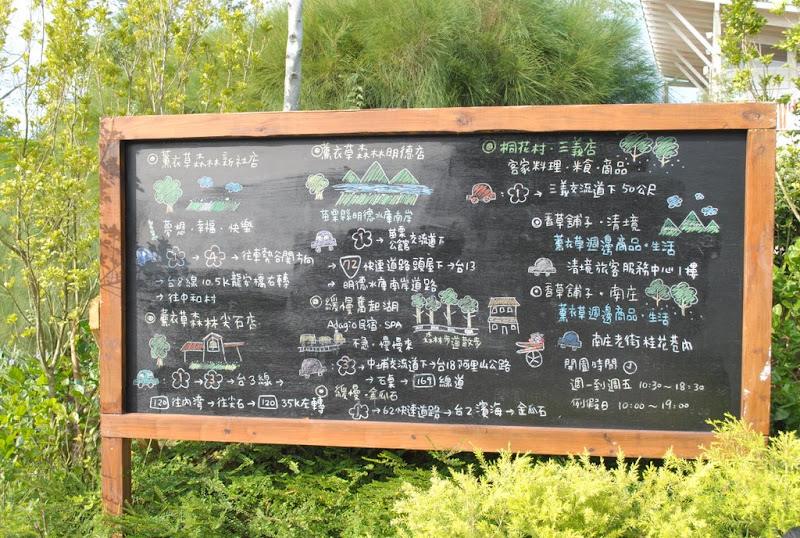 ◎薰衣草森林新社店
夢想·幸福·快樂
→ 4 → 往東勢谷關方向
→ 台8線 10.5K龍安橋右轉
→ 往中和村
◎薰衣草森林尖石店
1 → 3 → 台3線 →
120 往內灣 → 往尖石 → 120 35K左轉
◎薰衣草森林明德店
苗栗縣明德水庫南岸
1 → 苗栗公館交流道下
→ 72 快速道路頭屋下 → 台13
→ 明德水庫南岸道路
◎緩慢奮起湖
Adagio民宿·SPA
不急·慢慢來
森林步道散步
3 → 中埔交流道下 → 台18阿里山公路
→ 石棹 → 169 線道
◎緩慢·金瓜石
1 → 62快速道路 → 台2濱海 → 金瓜石
◎桐花村·三義店
客家料理·米食·商品
1 → 三義交流道下50公尺
◎香草舖子·清境
薰衣草週邊商品·生活
清境旅客服務中心1樓
◎香草舖子·南庄
薰衣草週邊商品·生活
南庄老街桂花巷內
開園時間
週一到週五 10:30~18:30
例假日 10:00~19:00